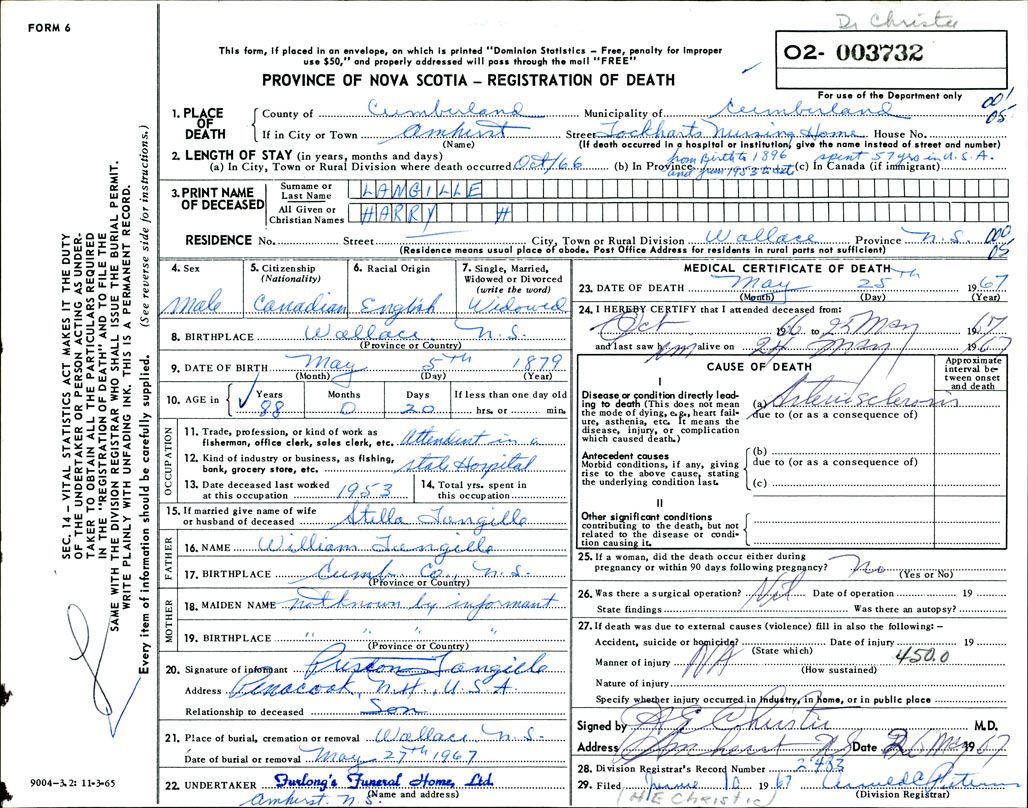 FORM 6
Dr Christie
This form, if placed in an envelope, on which is printed "Dominion Statistics – Free, penalty for improper
use $50," and properly addressed will pass through the mail "FREE"
PROVINCE OF NOVA SCOTIA – REGISTRATION OF DEATH
O2- 003732
For use of the Department only
001
05
1. PLACE OF DEATH
County of Cumberland Municipality of Cumberland
If in City or Town Amherst Street Lockharts Nursing Home House No.
(Name) (If death occurred in a hospital or institution, give the name instead of street and number)
2. LENGTH OF STAY (in years, months and days) from Birth to 1896 spent 57 yrs in U.S.A.
(a) In City, Town or Rural Division where death occurred Oct/66 (b) In Province and from 1953 to date (c) In Canada (if immigrant)
3. PRINT NAME OF DECEASED
Surname or Last Name LANGILLE
All Given or Christian Names HARRY H
RESIDENCE No. Street City, Town or Rural Division Wallace Province N.S.
000
05
(Residence means usual place of abode. Post Office Address for residents in rural parts not sufficient)
4. Sex Male
5. Citizenship (Nationality) Canadian
6. Racial Origin English
7. Single, Married, Widowed or Divorced (write the word) Widowed
8. BIRTHPLACE Wallace N.S.
(Province or Country)
9. DATE OF BIRTH May 5th 1879
(Month) (Day) (Year)
10. AGE in Years 88 Months 0 Days 20 If less than one day old hrs. or min.
OCCUPATION
11. Trade, profession, or kind of work as fisherman, office clerk, sales clerk, etc. Attendent in a
12. Kind of industry or business, as fishing, bank, grocery store, etc. state Hospital
13. Date deceased last worked at this occupation 1953
14. Total yrs. spent in this occupation
15. If married give name of wife or husband of deceased Stella Langille
FATHER
16. NAME William Langille
17. BIRTHPLACE Cumb. Co., N.S.
(Province or Country)
MOTHER
18. MAIDEN NAME not known by informant
19. BIRTHPLACE " " "
(Province or Country)
20. Signature of informant Preston Langille
Address Penacook, N.H., U.S.A
Relationship to deceased Son
21. Place of burial, cremation or removal Wallace N.S.
Date of burial or removal May 27th 1967
22. UNDERTAKER Furlong's Funeral Home, Ltd.
(Name and address)
Amherst. N.S.
MEDICAL CERTIFICATE OF DEATH
23. DATE OF DEATH May 25th 1967
(Month) (Day) (Year)
24. I HEREBY CERTIFY that I attended deceased from:
Oct 1966 to 25 May 1967
and last saw him alive on 24 May 1967
CAUSE OF DEATH
Approximate interval between onset and death
I
Disease or condition directly leading to death (This does not mean the mode of dying, e.g., heart failure, asthenia, etc. It means the disease, injury, or complication which caused death.)
(a) Arteriosclerosis
due to (or as a consequence of)
Antecedent causes
Morbid conditions, if any, giving rise to the above cause, stating the underlying condition last.
(b)
due to (or as a consequence of)
(c)
II
Other significant conditions
contributing to the death, but not related to the disease or condition causing it.
25. If a woman, did the death occur either during pregnancy or within 90 days following pregnancy? No
(Yes or No)
26. Was there a surgical operation? Nil Date of operation 19
State findings Was there an autopsy?
27. If death was due to external causes (violence) fill in also the following: –
Accident, suicide or homicide? Date of injury 19
(State which)
Manner of injury NA 450.0
(How sustained)
Nature of injury
Specify whether injury occurred in Industry, in home, or in public place
Signed by H E Christie M.D.
Address Amherst NS Date May 1967
28. Division Registrar's Record Number 2483
29. Filed June 10 1967
(Division Registrar)
(H E Christie)
SEC. 14 – VITAL STATISTICS ACT MAKES IT THE DUTY
OF THE UNDERTAKER OR PERSON ACTING AS UNDER-
TAKER TO OBTAIN ALL THE PARTICULARS REQUIRED
IN THE "REGISTRATION OF DEATH" AND TO FILE THE
SAME WITH THE DIVISION REGISTRAR WHO SHALL ISSUE THE BURIAL PERMIT.
WRITE PLAINLY WITH UNFADING INK. THIS IS A PERMANENT RECORD.
Every item of information should be carefully supplied. (See reverse side for instructions.)
9004–3.2: 11-3-65